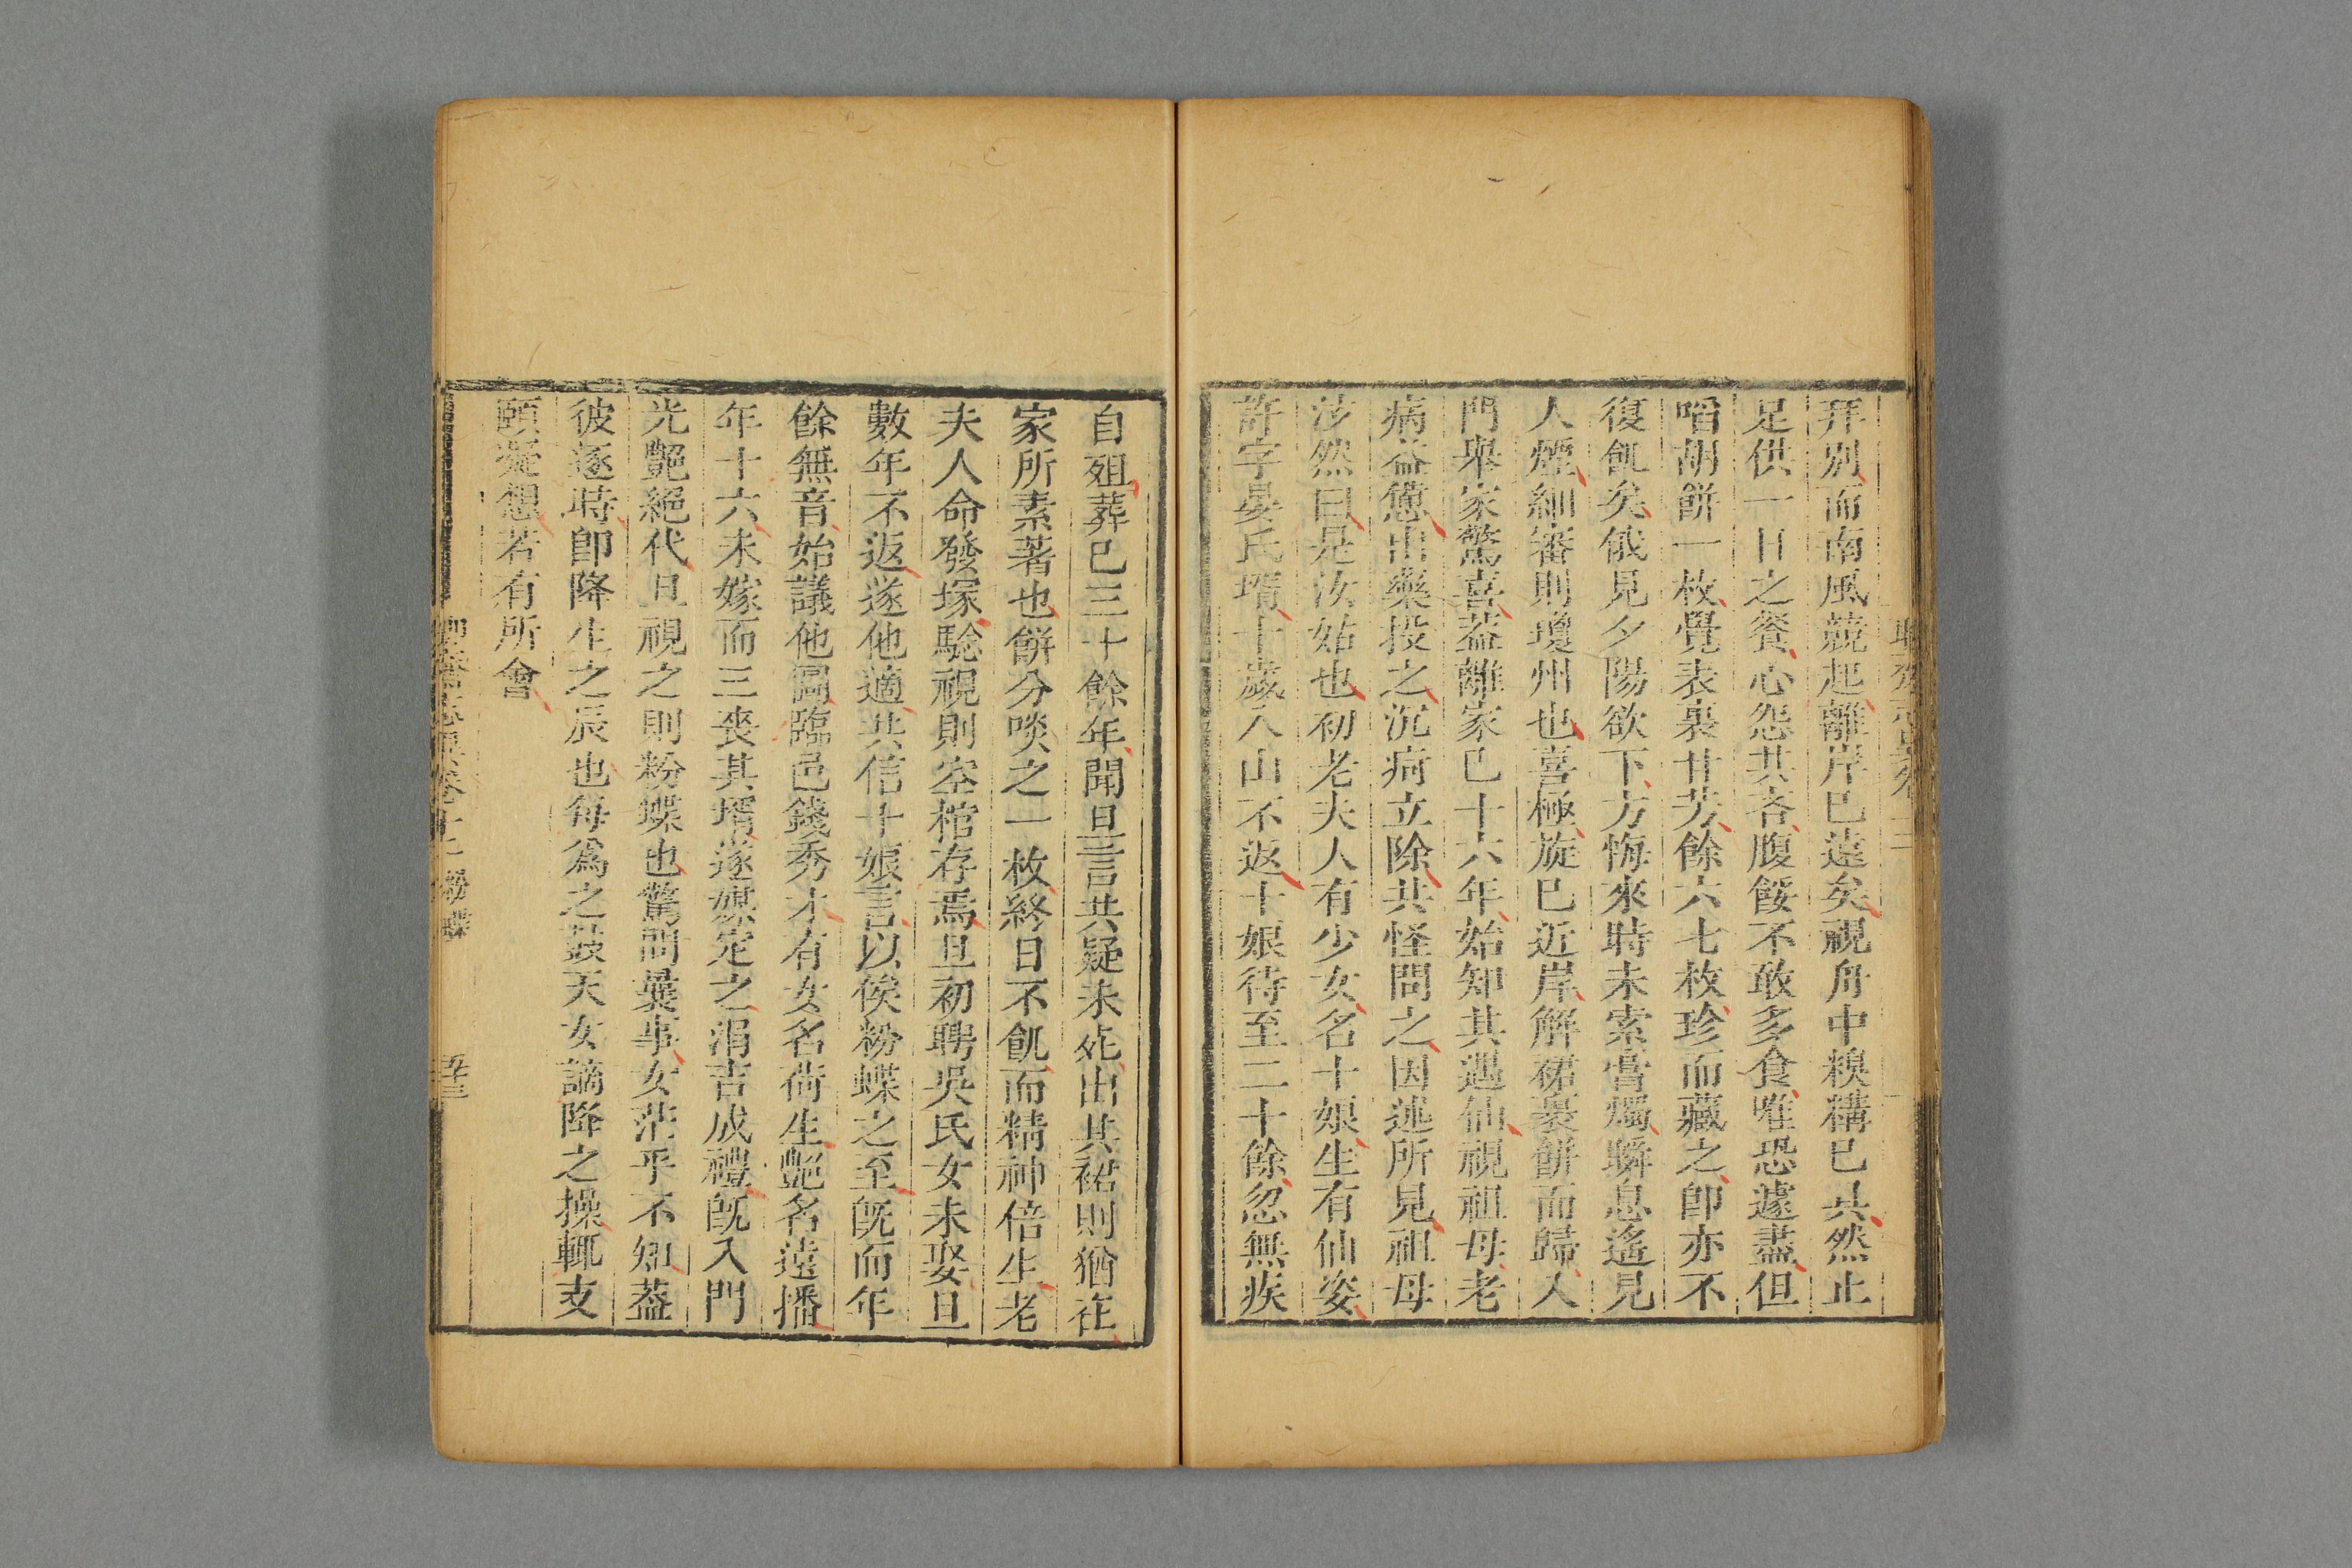 拜別而南風競起離岸巳遠矣視舟中糗糒巳具然止
足供一日之餐心怨其吝腹餒不敢多食唯恐遽盡但
啗胡餅一枚覺表裏甘芳餘六七枚珍而藏之卽亦不
復飢矣俄見夕陽欲下方悔來時未索膏燭瞬息遙見
人煙細審則瓊州也喜極旋巳近岸解裙裹餅而歸入
門舉家驚喜葢離家巳十六年始知其遇仙視祖母老
病益憊出藥投之沉疴立除共怪問之因述所見祖母
泫然曰是汝姑也初老夫人有少女名十娘生有仙姿
許字晏氏壻十六歲入山不返十娘待至二十餘忽無疾
自殂葬巳三十餘年聞旦言共疑未死出其裙則猶在
家所素著也餅分啖之一枚終日不飢而精神倍生老
夫人命發塚驗視則空棺存焉旦初聘吳氏女未娶旦
數年不返遂他適共信十娘言以俟粉蝶之至旣而年
餘無音始議他圖臨邑錢秀才有女名荷生艷名遠播
年十六未嫁而三喪其壻遂媒定之涓吉成禮旣入門
光艷絕代旦視之則粉蝶也驚問曩事女茫乎不知葢
彼逐時卽降生之辰也每爲之鼓天女謫降之操輒支
頤凝想若有所會
聊齋志異卷十二 粉蝶